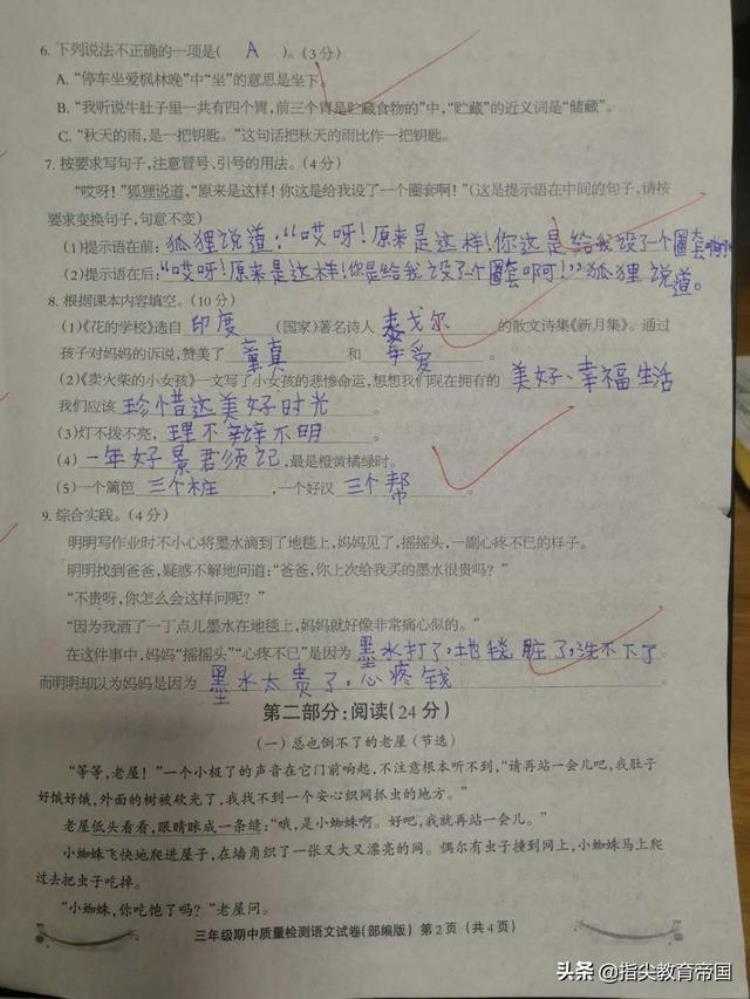 6. 下列说法不正确的一项是( A )。(3分)
A. “停车坐爱枫林晚”中“坐”的意思是坐下
B. “我听说牛肚子里一共有四个胃,前三个胃是贮藏食物的”中,“贮藏”的近义词是“储藏”。
C. “秋天的雨,是一把钥匙。”这句话把秋天的雨比作一把钥匙。
7. 按要求写句子,注意冒号、引号的用法。(4分)
“哎呀!”狐狸说道,“原来是这样!你这是给我设了一个圈套啊!”(这是提示语在中间的句子,请按
要求变换句子,句意不变)
(1)提示语在前:狐狸说道:“哎呀!原来是这样!你这是给我设了一个圈套啊!
(2)提示语在后:“哎呀!原来是这样!你是给我设了个圈套啊!”狐狸说道。
8. 根据课本内容填空。(10分)
(1)《花的学校》选自 印度 (国家)著名诗人 泰戈尔 的散文诗集《新月集》。通过
孩子对妈妈的诉说,赞美了 童真 和 母爱 。
(2)《卖火柴的小女孩》一文写了小女孩的悲惨命运,想想我们现在拥有的 美好、幸福生活
我们应该 珍惜这美好时光 。
(3)灯不拨不亮, 理不辩不明 。
(4) 一年好景君须记 ,最是橙黄橘绿时。
(5)一个篱笆 三个桩 ,一个好汉 三个帮 。
9. 综合实践。(4分)
明明写作业时不小心将墨水滴到了地毯上,妈妈见了,摇摇头,一副心疼不已的样子。
明明找到爸爸,疑惑不解地问道:“爸爸,你上次给我买的墨水很贵吗?”
“不贵呀,你怎么会这样问呢?”
“因为我洒了一丁点儿墨水在地毯上,妈妈就好像非常痛心似的。”
在这件事中,妈妈“摇摇头”“心疼不已”是因为 墨水打了,地毯脏了,洗不下了
而明明却以为妈妈是因为 墨水太贵了,心疼钱 。
第二部分:阅读(24分)
(一)总也倒不了的老屋(节选)
“等等,老屋!”一个小极了的声音在它门前响起,不注意根本听不到,“请再站一会儿吧,我肚子
好饿好饿,外面的树被砍光了,我找不到一个安心织网抓虫的地方。”
老屋低头看看,眼睛眯成一条缝:“哦,是小蜘蛛啊。好吧,我就再站一会儿。”
小蜘蛛飞快地爬进屋子,在墙角织了一张又大又漂亮的网。偶尔有虫子撞到网上,小蜘蛛马上爬
过去把虫子吃掉。
“小蜘蛛,你吃饱了吗?”老屋问。
三年级期中质量检测语文试卷(部编版) 第2页(共4页)
头条 @指尖教育帝国